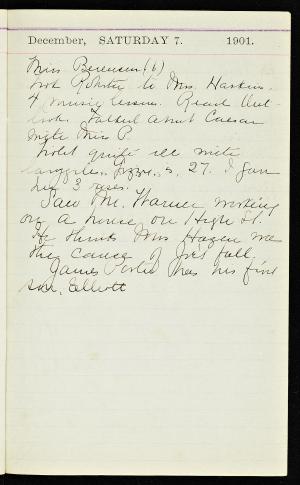 December, SATURDAY 7. 1901.
Miss Berenson (6)
to Mrs. Haskins.
& music lesson. Read Out-
look. Talked about Caesar
Miss P.
Violet quite ill with
27. I gave
her 3 roses.
Saw Mr. Warner working
on a house on High St.
He thinks Mrs Hagen was
the cause of Joe's fall.
James Porter has his first
son, Elliott